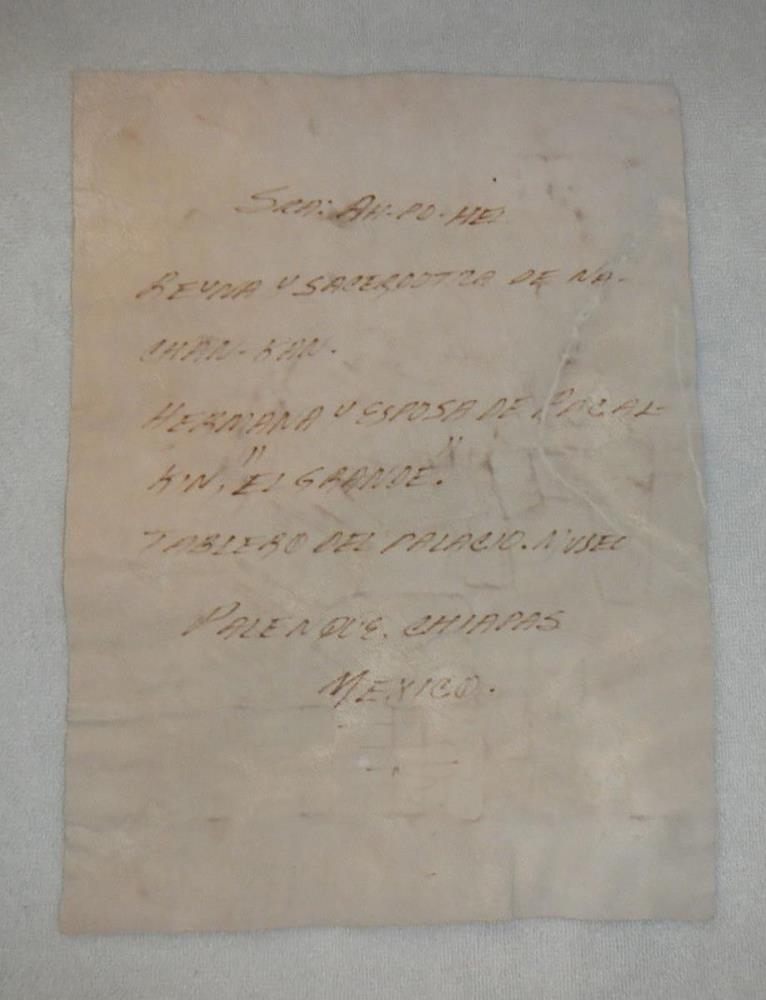 Sra: Ah-po-Hel
Reyna y sacerdotiza de Na-
chan-kan.
Hermana y esposa de Pacal-
kin, "El Grande".
Tablero del palacio. Museo
Palenque. Chiapas
Mexico.